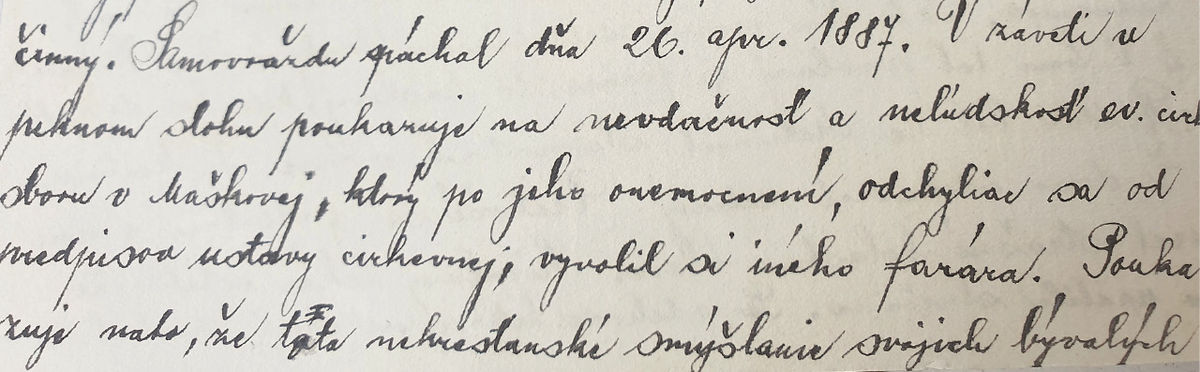 činný. Samovraždu páchal dňa 26. apr. 1887. V záveti u
peknom slohu poukazuje na nevdačnosť a neľudskosť ev. cirk
sboru v Maškovej, ktorý po jeho onemocnení, odchyliac sa od
predpisov ustavy cirkevnej, vyvolil si iného farára. Pouka
zuje nato, že nekrestanské smýšlanie svojich bývalých